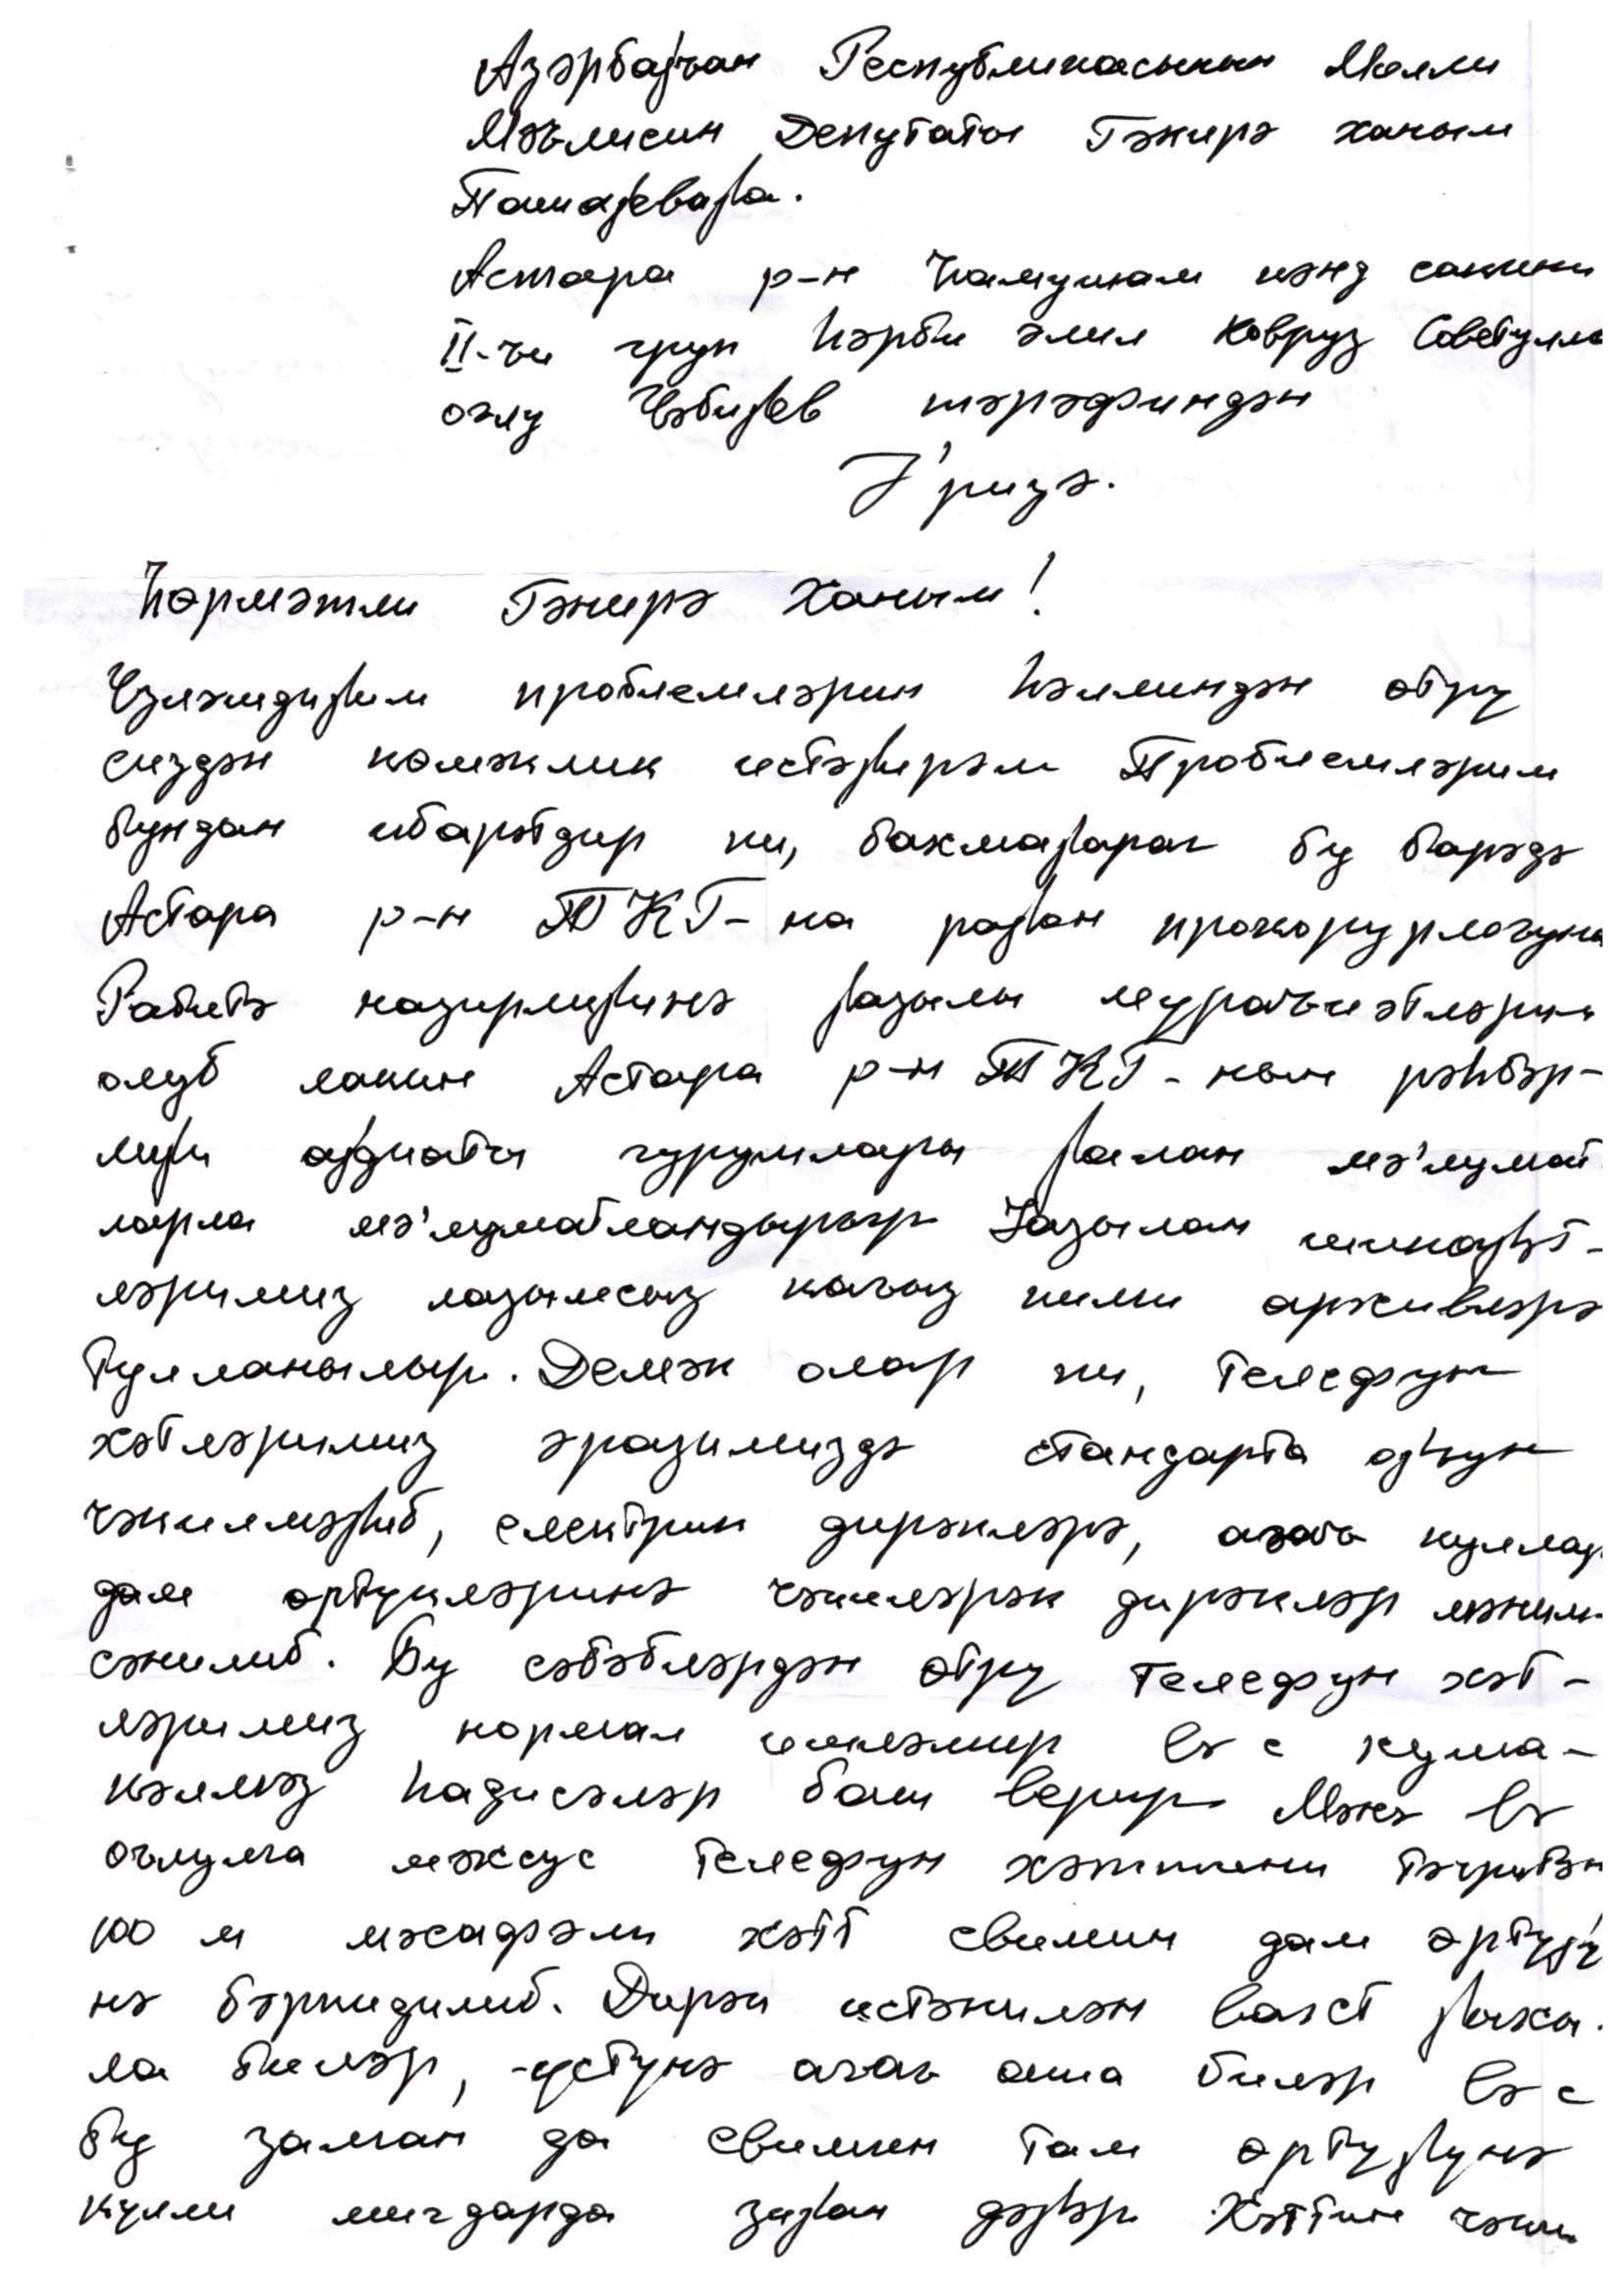 Азәрбајҹан Республикасынын Милли
Мәҹлисин Депутаты Гәнирә ханым
Пашајеваја.
Астара р-н Һамушам кәнд сакини
II-ҹи груп һәрби әлил Новруз Советулла
оғлу Нәбијев тәрәфиндән
Ә'ризә.
Һөрмәтли Гәнирә Ханым!
Үзләшдијим проблемләрин һәллиндән өтрү
сиздән көмәклик истәјирәм Проблемләрим
бундан ибарәтдир ки, бахмајараг бу барәдә
Астара р-н ТКГ-на рајон прокурорлуғуна
Рабитә назирлијинә јазылы мүраҹиәтләрим
олуб лакин Астара р-н ТКГ-нын рәһбәр-
лији аидијјәти гурумлары јалан мә'лумат
ларла мә'луматландырыр Јазылан шикајәт-
ләримиз лазымсыз кағыз кими архивләрә
тулланылыр. Демәк олар ки, телефун
хәтләримиз әразимиздә стандарта ујғун
чәкилмәјиб, електрик дирәкләрә, ағаҹ куллар
дам өртүкләринә чәкиләрәк дирәкләр мәним
сәнилиб. Бу сәбәбләрдән өтрү телефун хәт-
ләримиз нормал ишләмир вә с күлә-
кәлмәз һадисәләр баш верир Мәнә вә
оғлума мәхсус телефун хәттини тәгрибән
100 м мәсафәли хәтт евимин дам өртүјү
нә бәркидилиб. Дирәк истәнилән вахт јыхы-
ла биләр, үстүнә ағаҹ аша биләр вә с
бу заман да евимин там өртүјүнә
күлли мигдарда зијан дәјәр Хәттин чәки